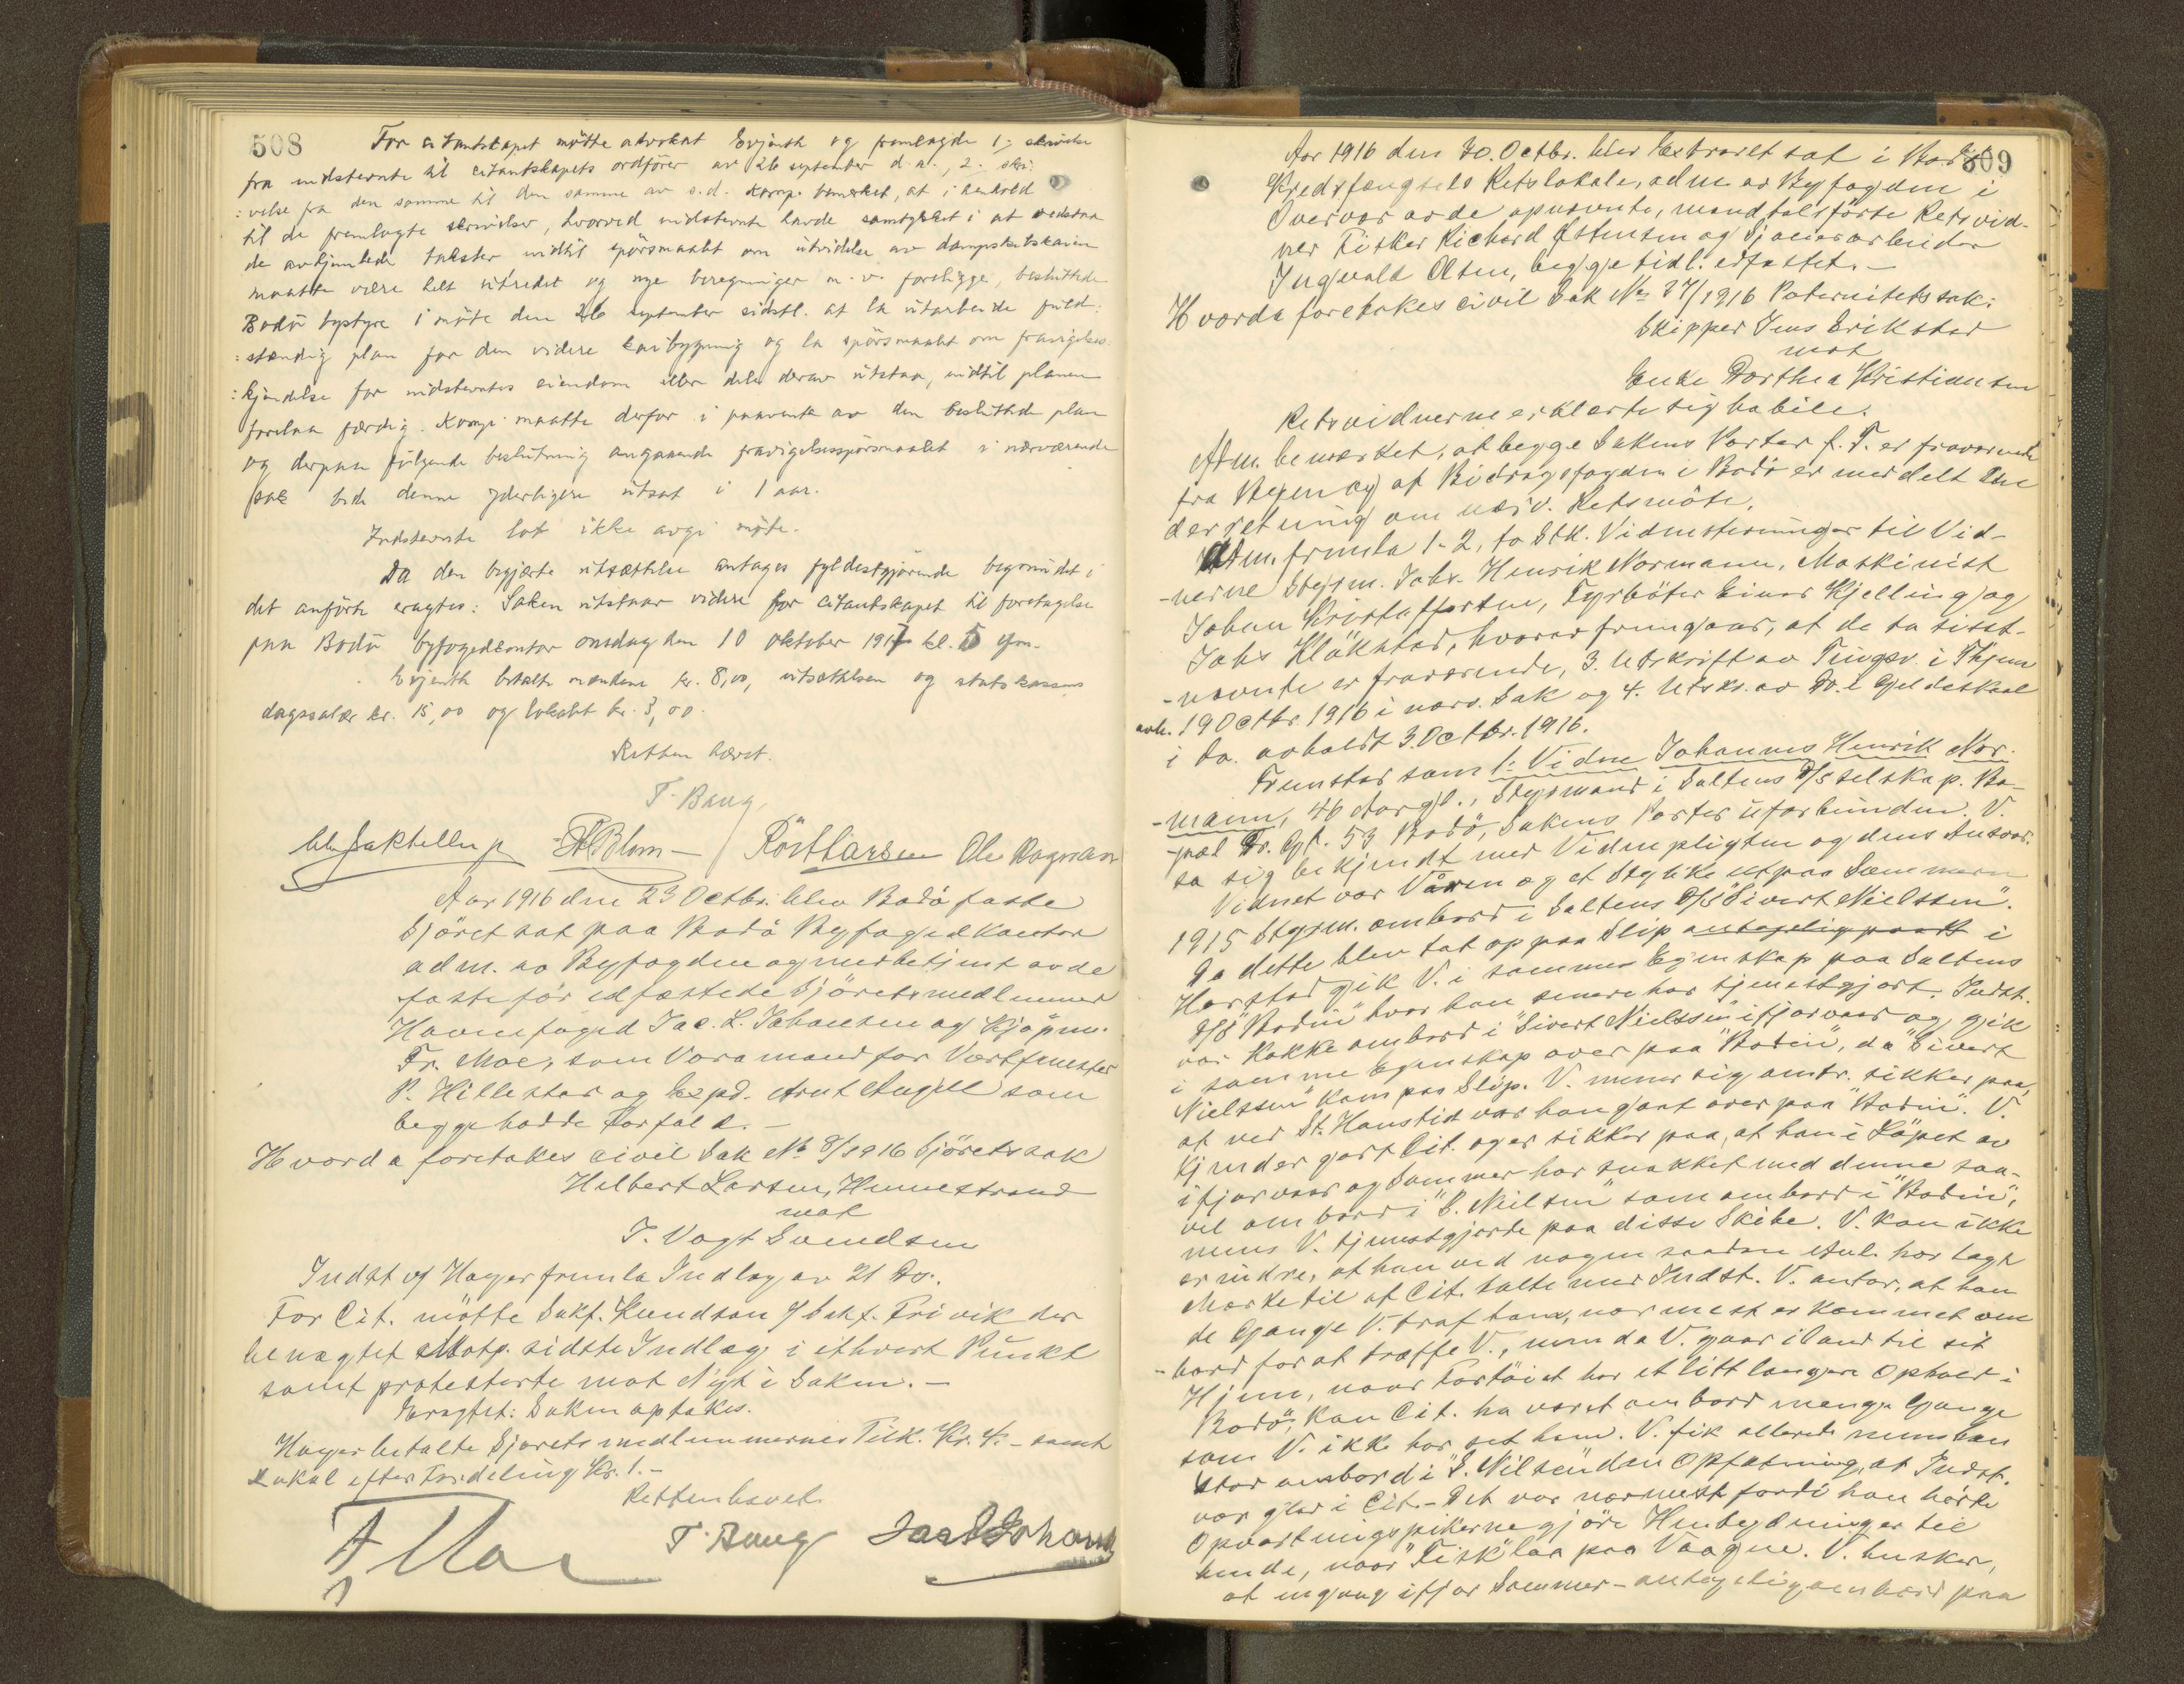 508
For citantskapet møtte advokat Evjenth og fremlagde 1: skrivelse
fra indstevnte til citantskapets ordfører av 26 september d.a., 2. skri-
:velse fra den samme til den samme av s.d. Komp. bemerket, at i henhold
til de fremlagte skrivelser, hvorved indstevnte havde samtykket i at
de avhjemlede takster indtil spørsmaalet om utvidelse av dampskibskaien
maatte være helt utredet og nye beregninger m.v. foreligge, besluttede
Bodø bystyre i møte den 26 september sidstl. at la utarbeide fuld-
:stændig plan for den videre kaibygning og la spørsmaalet om fravigelses-
:kjendelse for indstevntes eiendom eller dele derav utstaa, indtil planen
forelaa færdig. Komp. maatte derfor i paavente av den besluttede plan
og derpaa følgende beslutning angaaende fravigelsesspørsmaalet i nærværende
sak bede denne yderligere utsat i 1 aar.
Indstevnte lot ikke avgi møte.
Da den begjærte utsættelse antages fyldestgjørende begrundet i
det anførte eragtes: Saken utstaar videre for citantskapet til foretagelse
paa Bodø byfogedkontor onsdag den 10 oktober 1917 kl. 5 em.
Evjenth betalte mændene kr. 8,00, utsættelsen og statskassens
dagssalær kr. 15,00 og lokalet kr. 3,00.
Retten hævet.
T. Bang
Blom Rørtlarsen Ole Ragnar
Aar 1916 den 23 Octbr. blev Bodø faste
Sjøret sat paa Bodø Byfogedkontor
adm. av Byfogden og medbetjent av de
faste før edfæstede Sjøretsmedlemmer
Havnefoged Jac. L. Johansen og Kjøpm.
Fr. Moe, som Varamand for Værftmester
P. Hillestad og Expd. Arnt Angell som
begge hadde Forfald.-
Hvorda foretakes civil Sak No 8/1916 Sjøretssak
Hilbert Larsen, Hunnestrand
mot
J. Vogt Svendsen
Indst v/ Hager fremla Indlæg av 21 Ds.
For Cit. møtte Sakf. Knudson f/ Sakf. Frivik der
benægtet Motp. sidste Indlæg i ethvert Punkt
samt protesterte mot Nyt i Saken.-
Eragtet: Saken optakes.
Hager betalte Sjøretsmedlemmernes Tilk. Kr. 4.- samt
Lokal efter Fordeling Kr. 1.-
Retten hævet.
F Moe T. Bang Jac L Johansen
509
Aar 1916 den 30. Octbr. blev Extraret sat i Bodø
Kredsfængsels Retslokale, adm. av Byfogden i
Overvær av de opnævnte, mandtalsførte Retsvid-
ner Fisker Richard Østensen og Sjauerarbeider
Ingvald Olsen, begge tidl. edfæstet.-
Hvorda foretakes civil Sak No 27/1916 Paternitetssak:
Skipper Jens Erikstad
mot
Enke Dorthea Kristiansen
Retsvidnerne erklærte sig habile.
Adm. bemærket, at begge Sakens Parter f. T. er fraværende
fra Byen og at Bidragsfogden i Bodø er meddelt Un-
derretning om nærv. Retsmøte.
Adm. fremla 1-2, to Stk. Vidnestevninger til Vid-
-nerne Styrm. Johs. Henrik Normann, Maskinist
Johan Kristoffersen, Fyrbøter Einar Kjelling og
Johs Kløkstad, hvorav fremgaar, at de to sidst-
-nævnte er fraværende, 3. Utskrift av Tingsv. i Skjerst
avh. 19 Octbr. 1916 i nærv. Sak og 4. Utskr. av Do. i Gildeskaal
i Do. avholdt 3. Octbr. 1916.
Fremstod som 1: Vidne Johannes Henrik Nor-
-mann, 46 Aar gl., Styrmand i Saltens D/S selskap. Bo-
-pæl Dr. Gt. 53 Bodø, Sakens Parter uforbunden. V.
sa sig bekjendt med Vidnepligten og dens Ansvar.
Vidnet var Vaaren og et Stykke utpaa Sommeren
1915 Styrm. ombord i Saltens D/S "Sivert Nielssen".
Da dette blev tat op paa Slip antagelig paa i
Harstad gik V. i samme Egenskap paa Saltens
D/S "Bodin" hvor han senere har tjenestgjort. Indst.
var Kokke ombord i "Sivert Nielssen" ifjorvaar og gik
i samme Egenskap over paa "Bodin", da "Sivert
Nielssen" kom paa Slip. V. mener sig omtr. sikker paa,
at ved St. Hanstid var hun gaat over paa "Bodin". V.
kjender godt Cit. og er sikker paa, at han i Løpet av
ifjorvaar og Sommer har snakket med denne saa-
vel ombord i "S. Nielsen" som ombord i "Bodin",
mens V. tjenestgjorde paa disse Skibe. V. kan ikke
erindre, at han ved nogen saadan Anl. har lagt
Mærke til at Cit. talte med Indst. V. antar, at han
de Gange V. traf ham, nærmest er kommet om
-bord for at træffe V., men da V. gaar iland til sit
Hjem, naar Fartøiet har et litt længere Ophold i
Bodø, kan Cit. ha været ombord mange Gange
som V. ikke har set ham. V. fik allerede mens han
stod ombord i "S. Nilsen" den Opfatning, at Indst.
var glad i Cit.- Det var nærmest fordi han hørte
Opvartningspikerne gjøre Hentydninger til
hende, naar "Fisk" laa paa Vaagne. V. husker,
at engang ifjor Sommer - antagelig ombord paa